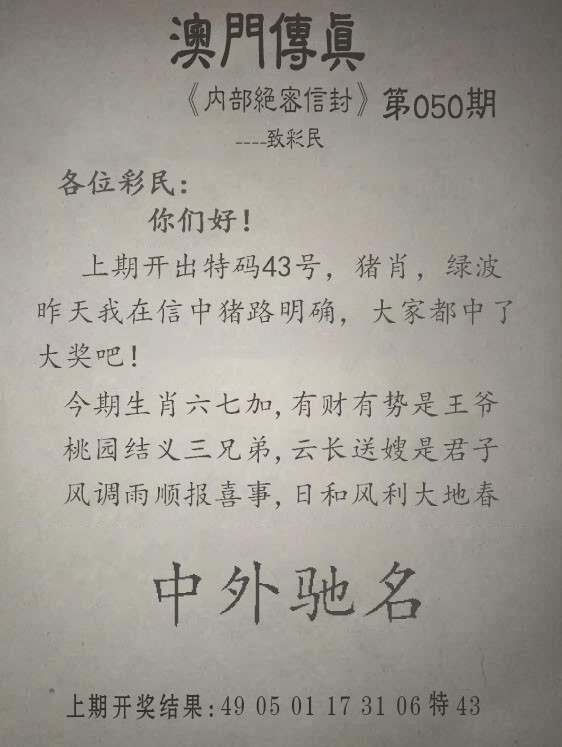 澳門傳眞
《内部絕密信封》第050期
----致彩民
各位彩民：
你们好！
上期开出特码43号，猪肖，绿波
昨天我在信中猪路明确，大家都中了
大奖吧！
今期生肖六七加,有财有势是王爷
桃园结义三兄弟,云长送嫂是君子
风调雨顺报喜事,日和风利大地春
中外驰名
上期开奖结果:49 05 01 17 31 06特43